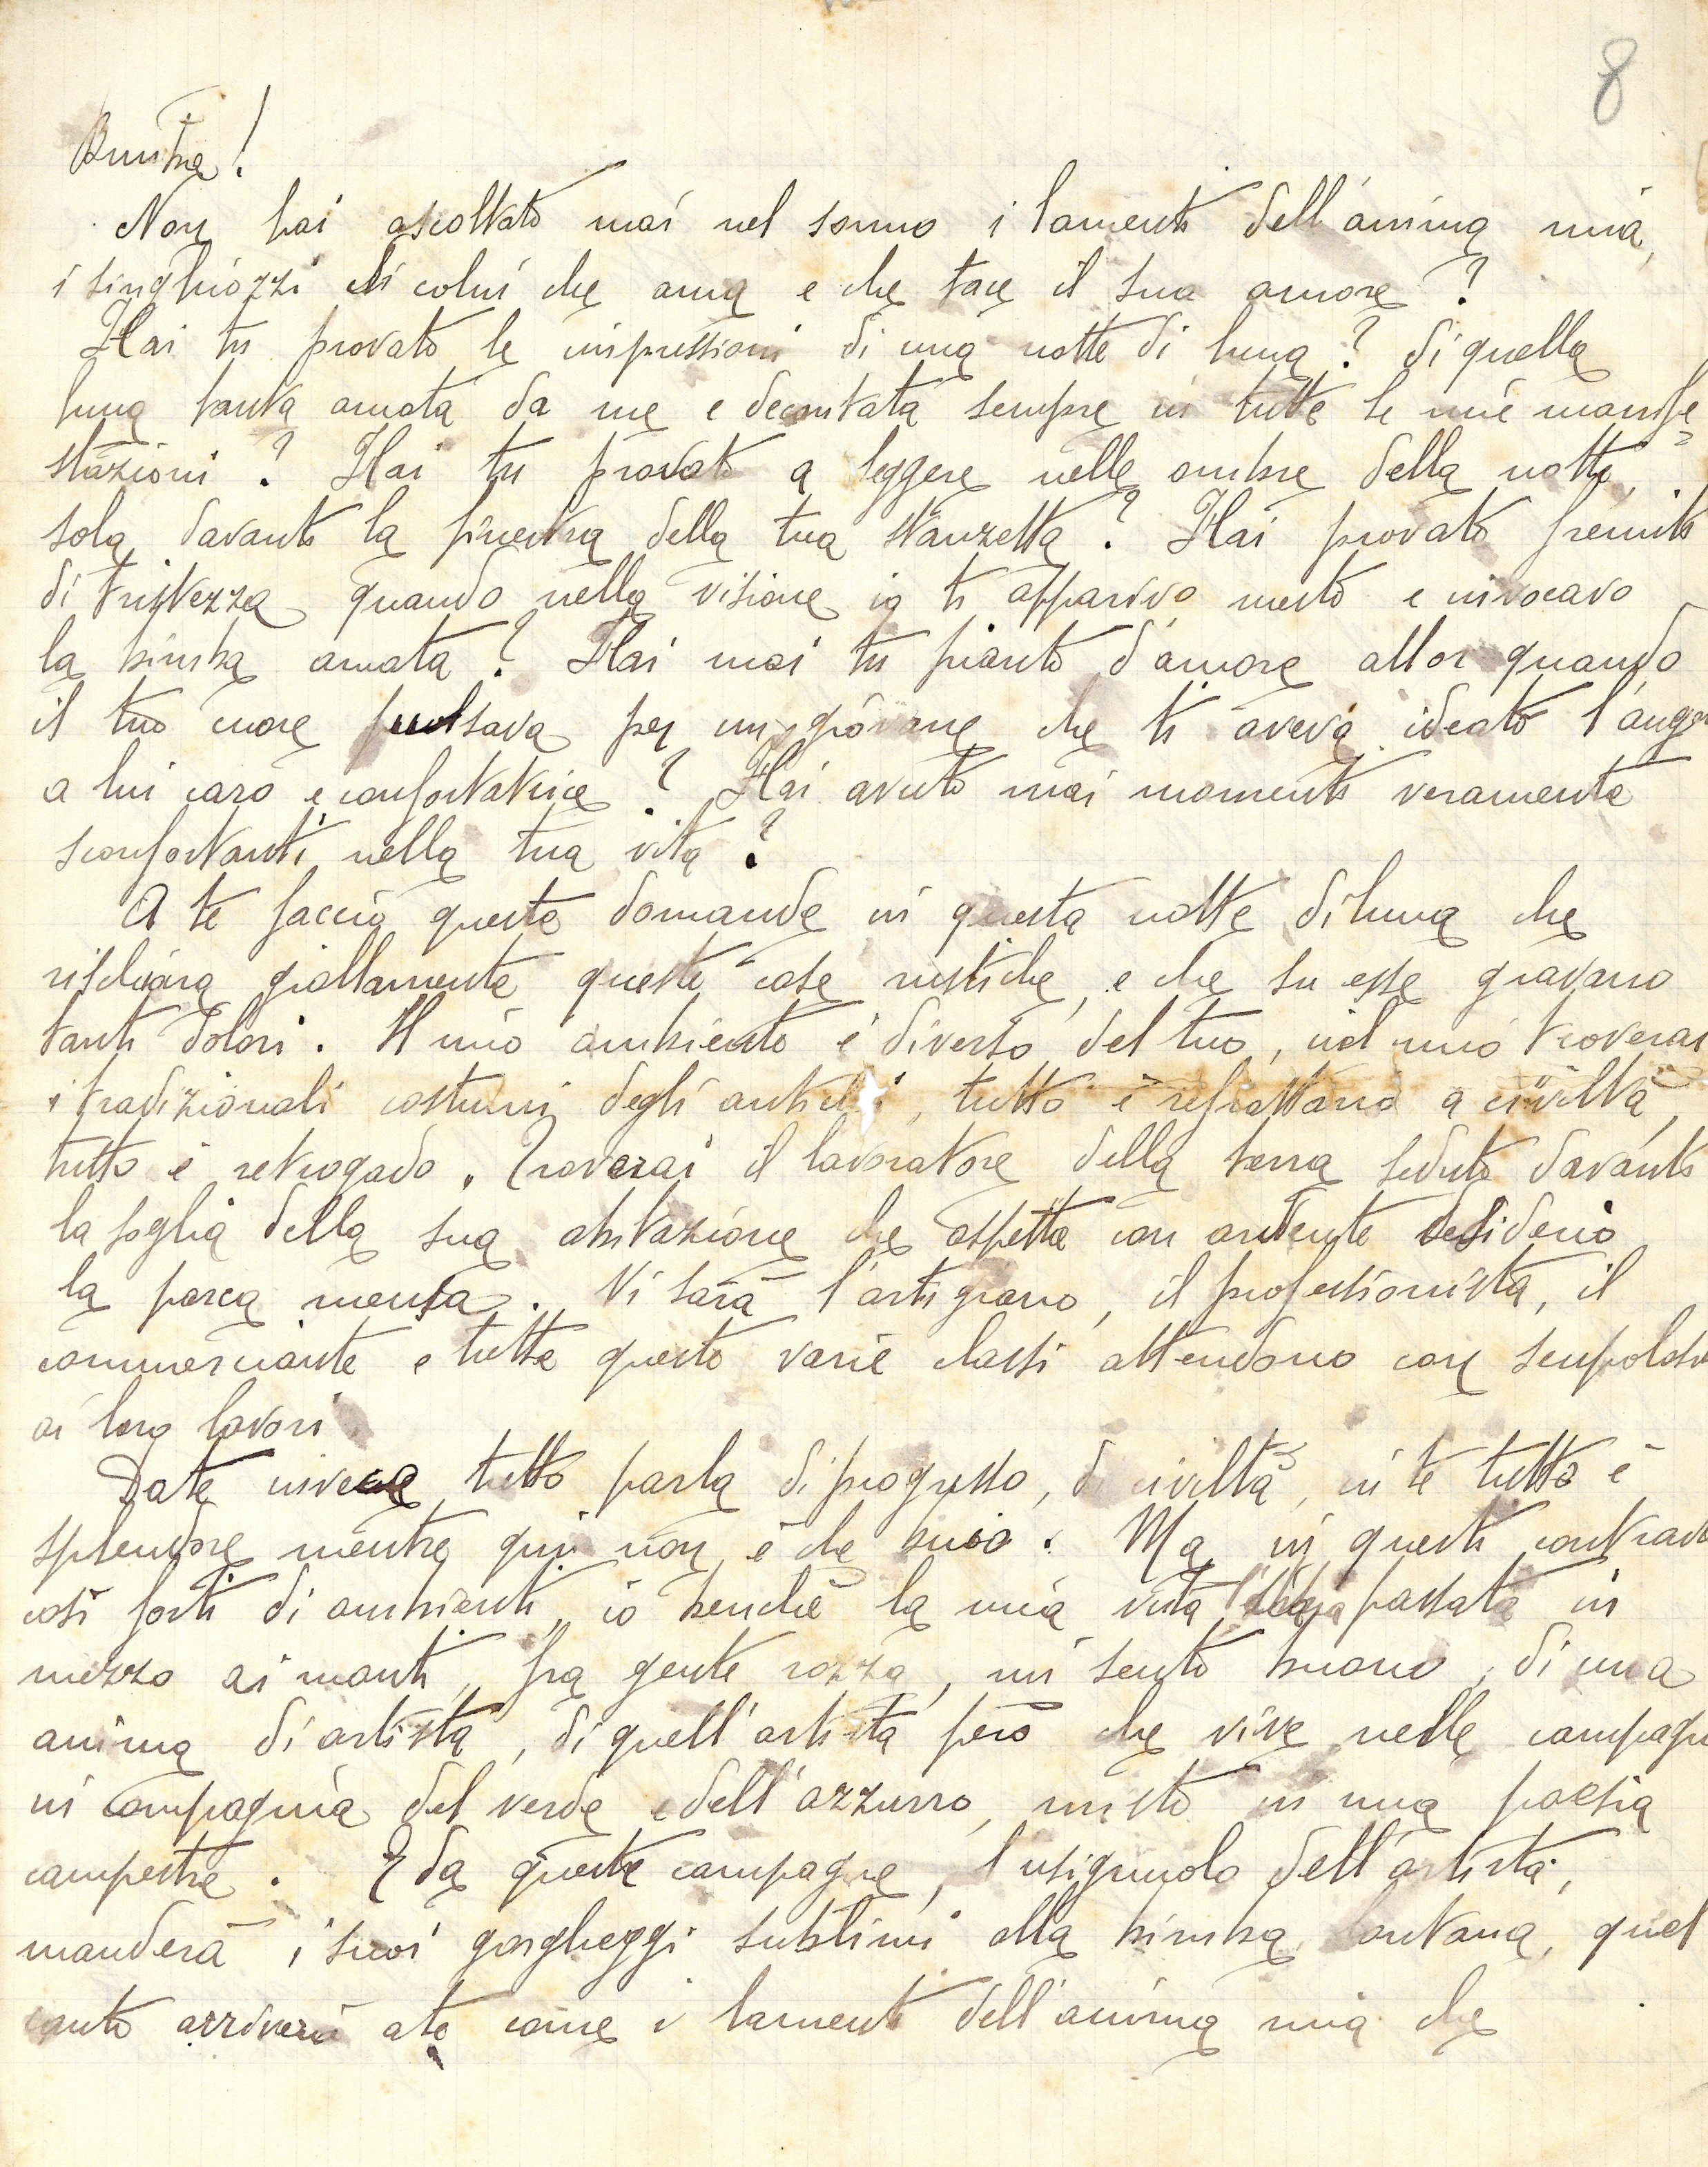 8
Bimba!
Non hai ascoltato mai nel sonno i lamenti dell'anima mia,
i singhiozzi di colui che ama e che tace il suo amore?
Hai tu provato le impressioni di una notte di luna? di quella
luna tanta amata da me e decantata sempre in tutte le mie manife=
stazioni? Hai tu provato a leggere nelle ombre della notte,
sola davanti la finestra della tua stanzetta? Hai provato fremiti
di tristezza quando nella visione io ti apparivo mesto e invocavo
la bimba amata? Hai mai tu pianto d'amore allor quando
il tuo cuore pulsava per un giovane che ti aveva ideato l'angelo
a lui caro e confortatrice? Hai avuto mai momenti veramente
sconfortanti nella tua vita?
A te faccio queste domande in questa notte di luna che
rischiara giallamente queste case rustiche, e che su esse gravano
tanti dolori. Il mio ambiente è diverso del tuo, nel mio troverai
i tradizionali costumi degli antichi, tutto è refrattario a civiltà,
tutto è retrogado. Troverai il lavoratore della terra seduto davanti
la soglia della sua abitazione che aspetta con ardente desiderio
la parca mensa. Vi sarà l'artigiano, il professionista, il
commerciante e tutte queste varie classi attendono con
ai loro lavori.
Da te invece tutto parla di progresso, di civiltà, in te tutto è
splendore mentre qui non è che buio. Ma in questi contrasti
così forti di ambienti, io benchè la mia vita l'abbia passata in
mezzo ai monti, fra gente rozza, mi sento buono, di una
anima di artista, di quell'artista però che vive nelle campagne
in compagnia del verde e dell'azzurro, misto in una poesia
campestre. E da queste campagne, l'usignuolo dell'artista,
manderà i suoi gorgheggi sublimi alla bimba lontana, quel
canto arriverà a te come i lamenti dell'anima mia che